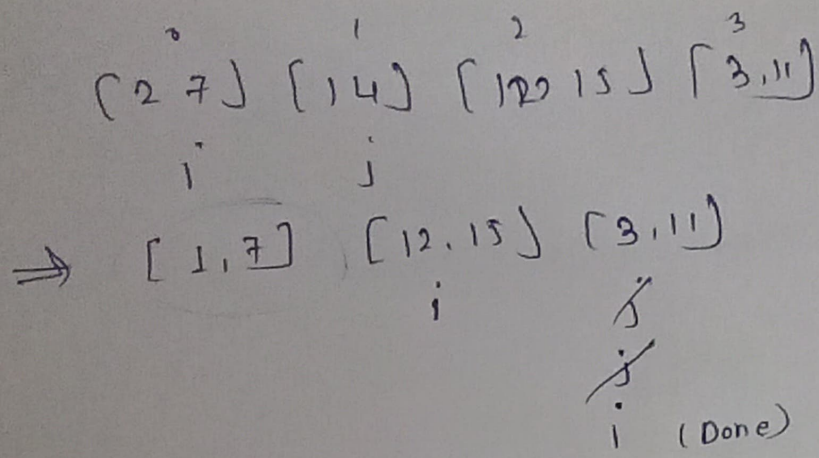 0 1 2 3
[2 7] [1 4] [12, 15] [3, 11]
i j
⇒ [1, 7] [12, 15] [3, 11]
i j
j
i (Done)